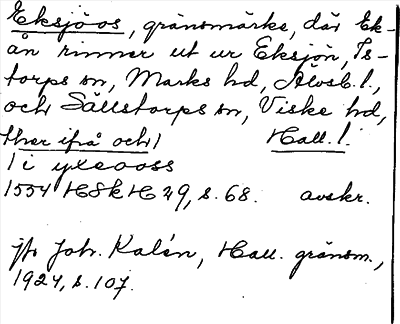 Eksjöos, gränsmärke, där Ek-
ån rinner ut ur Eksjön, Is-
torps sn, Marks hd, Älvsb. l.,
och Sällstorps sn, Viske hd,
(ther ifrå och) Hall. l.
i yxeooss
1554 HSkH 29, s. 68. avskr.
jfr Joh. Kalén, Hall. gränsm.,
1924, s. 107.